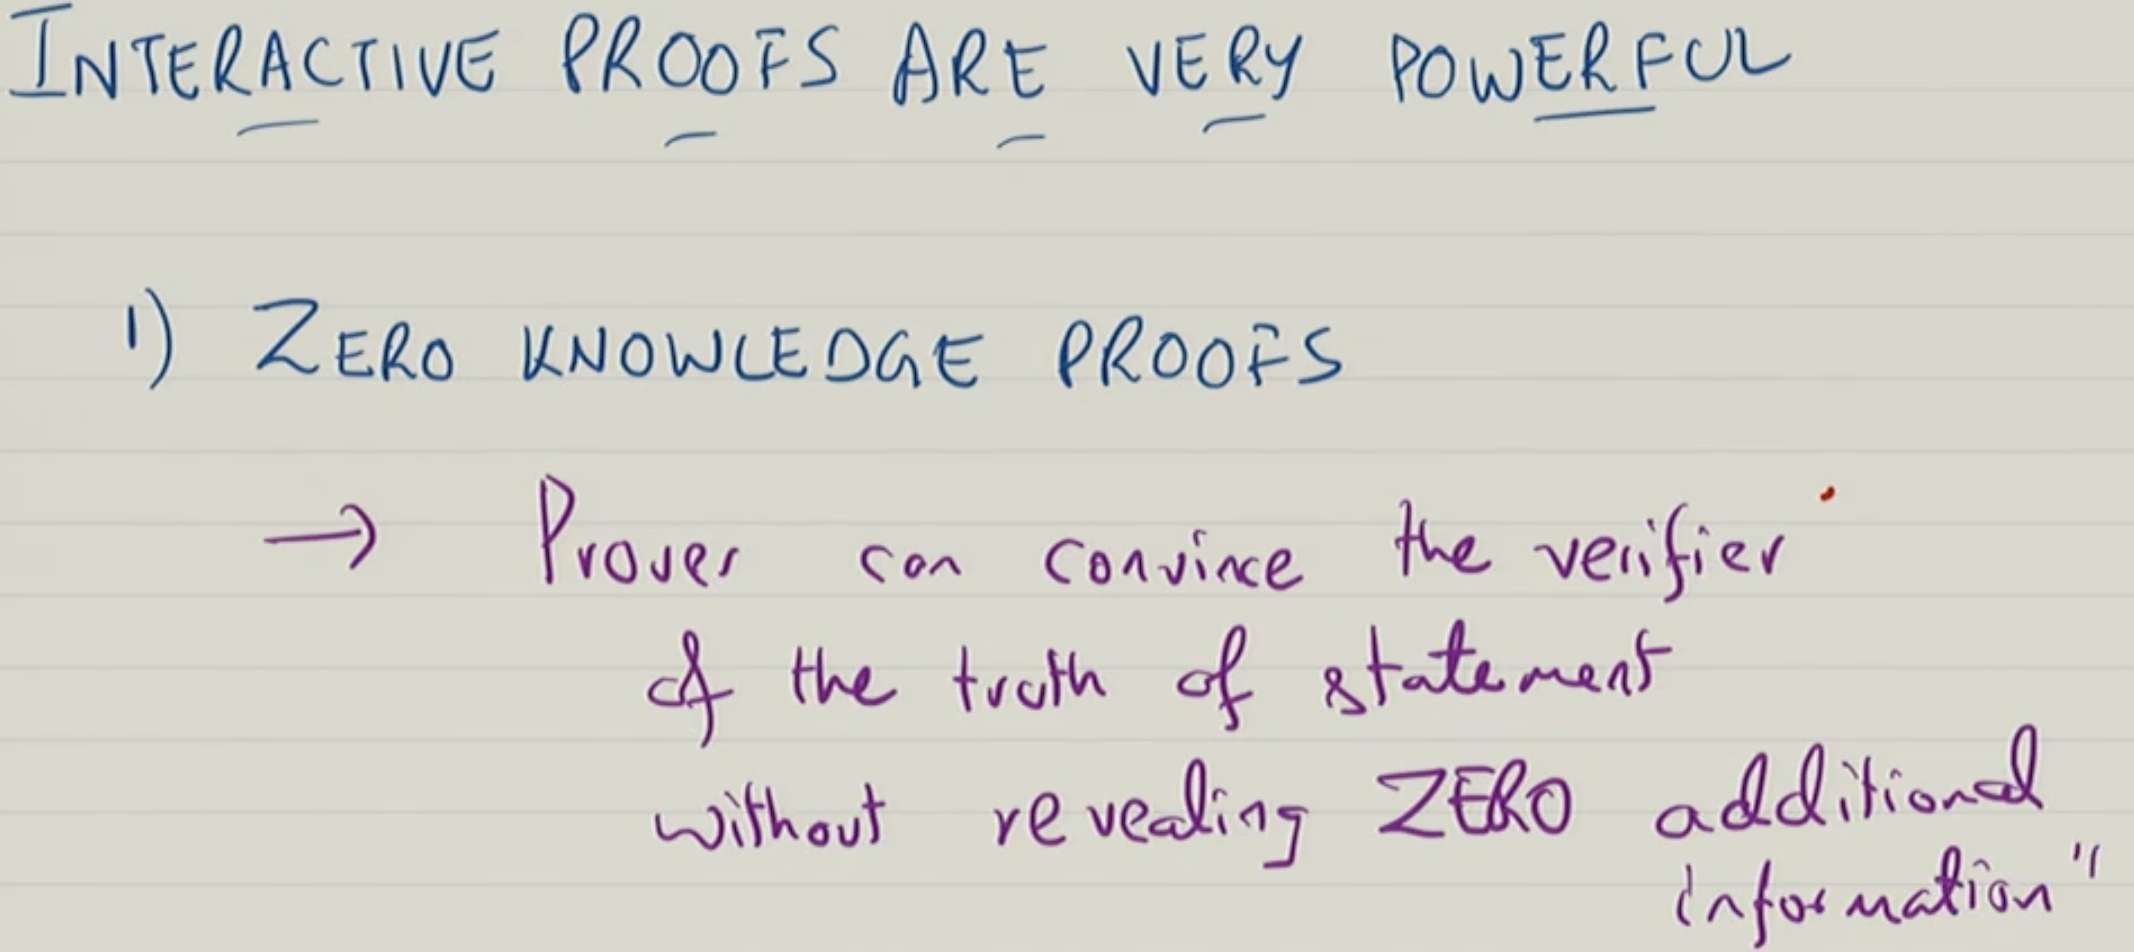 INTERACTIVE PROOFS ARE VERY POWERFUL
1) ZERO KNOWLEDGE PROOFS
→ Prover can convince the verifier
of the truth of statement
without revealing ZERO additional
information"